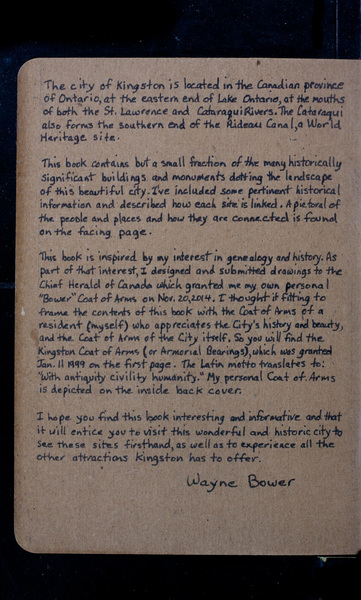 The city of Kingston is located in the Canadian province
of Ontario, at the eastern end of Lake Ontario, at the mouths
of both the St. Lawrence and Cataraqui Rivers. The Cataraqui
also forms the southern end of the Rideau Canal, a World
Heritage site.
This book contains but a small fraction of the many historically
significant buildings and monuments dotting the landscape
of this beautiful city. I've included some pertinent historical
information and described how each site is linked. A pictoral of
the people and places and how they are connected is found
on the facing page.
This book is inspired by my interest in genealogy and history. As
part of that interest, I designed and submitted drawings to the
Chief Herald of Canada which granted me my own personal
"Bower" Coat of Arms on Nov. 20, 2014. I thought it fitting to
frame the contents of this book with the Coat of Arms of a
resident (myself) who appreciates the City's history and beauty,
and the Coat of Arm of the City itself. So you will find the
Kingston Coat of Arms (or Armorial Bearings), which was granted
Jan. 11 1999 on the first page. The Latin motto translates to:
"With antiquity civility humanity." My personal Coat of Arms
is depicted on the inside back cover.
I hope you find this book interesting and informative and that
it will entice you to visit this wonderful and historic city to
see these sites firsthand, as well as to experience all the
other attractions Kingston has to offer.
Wayne Bower